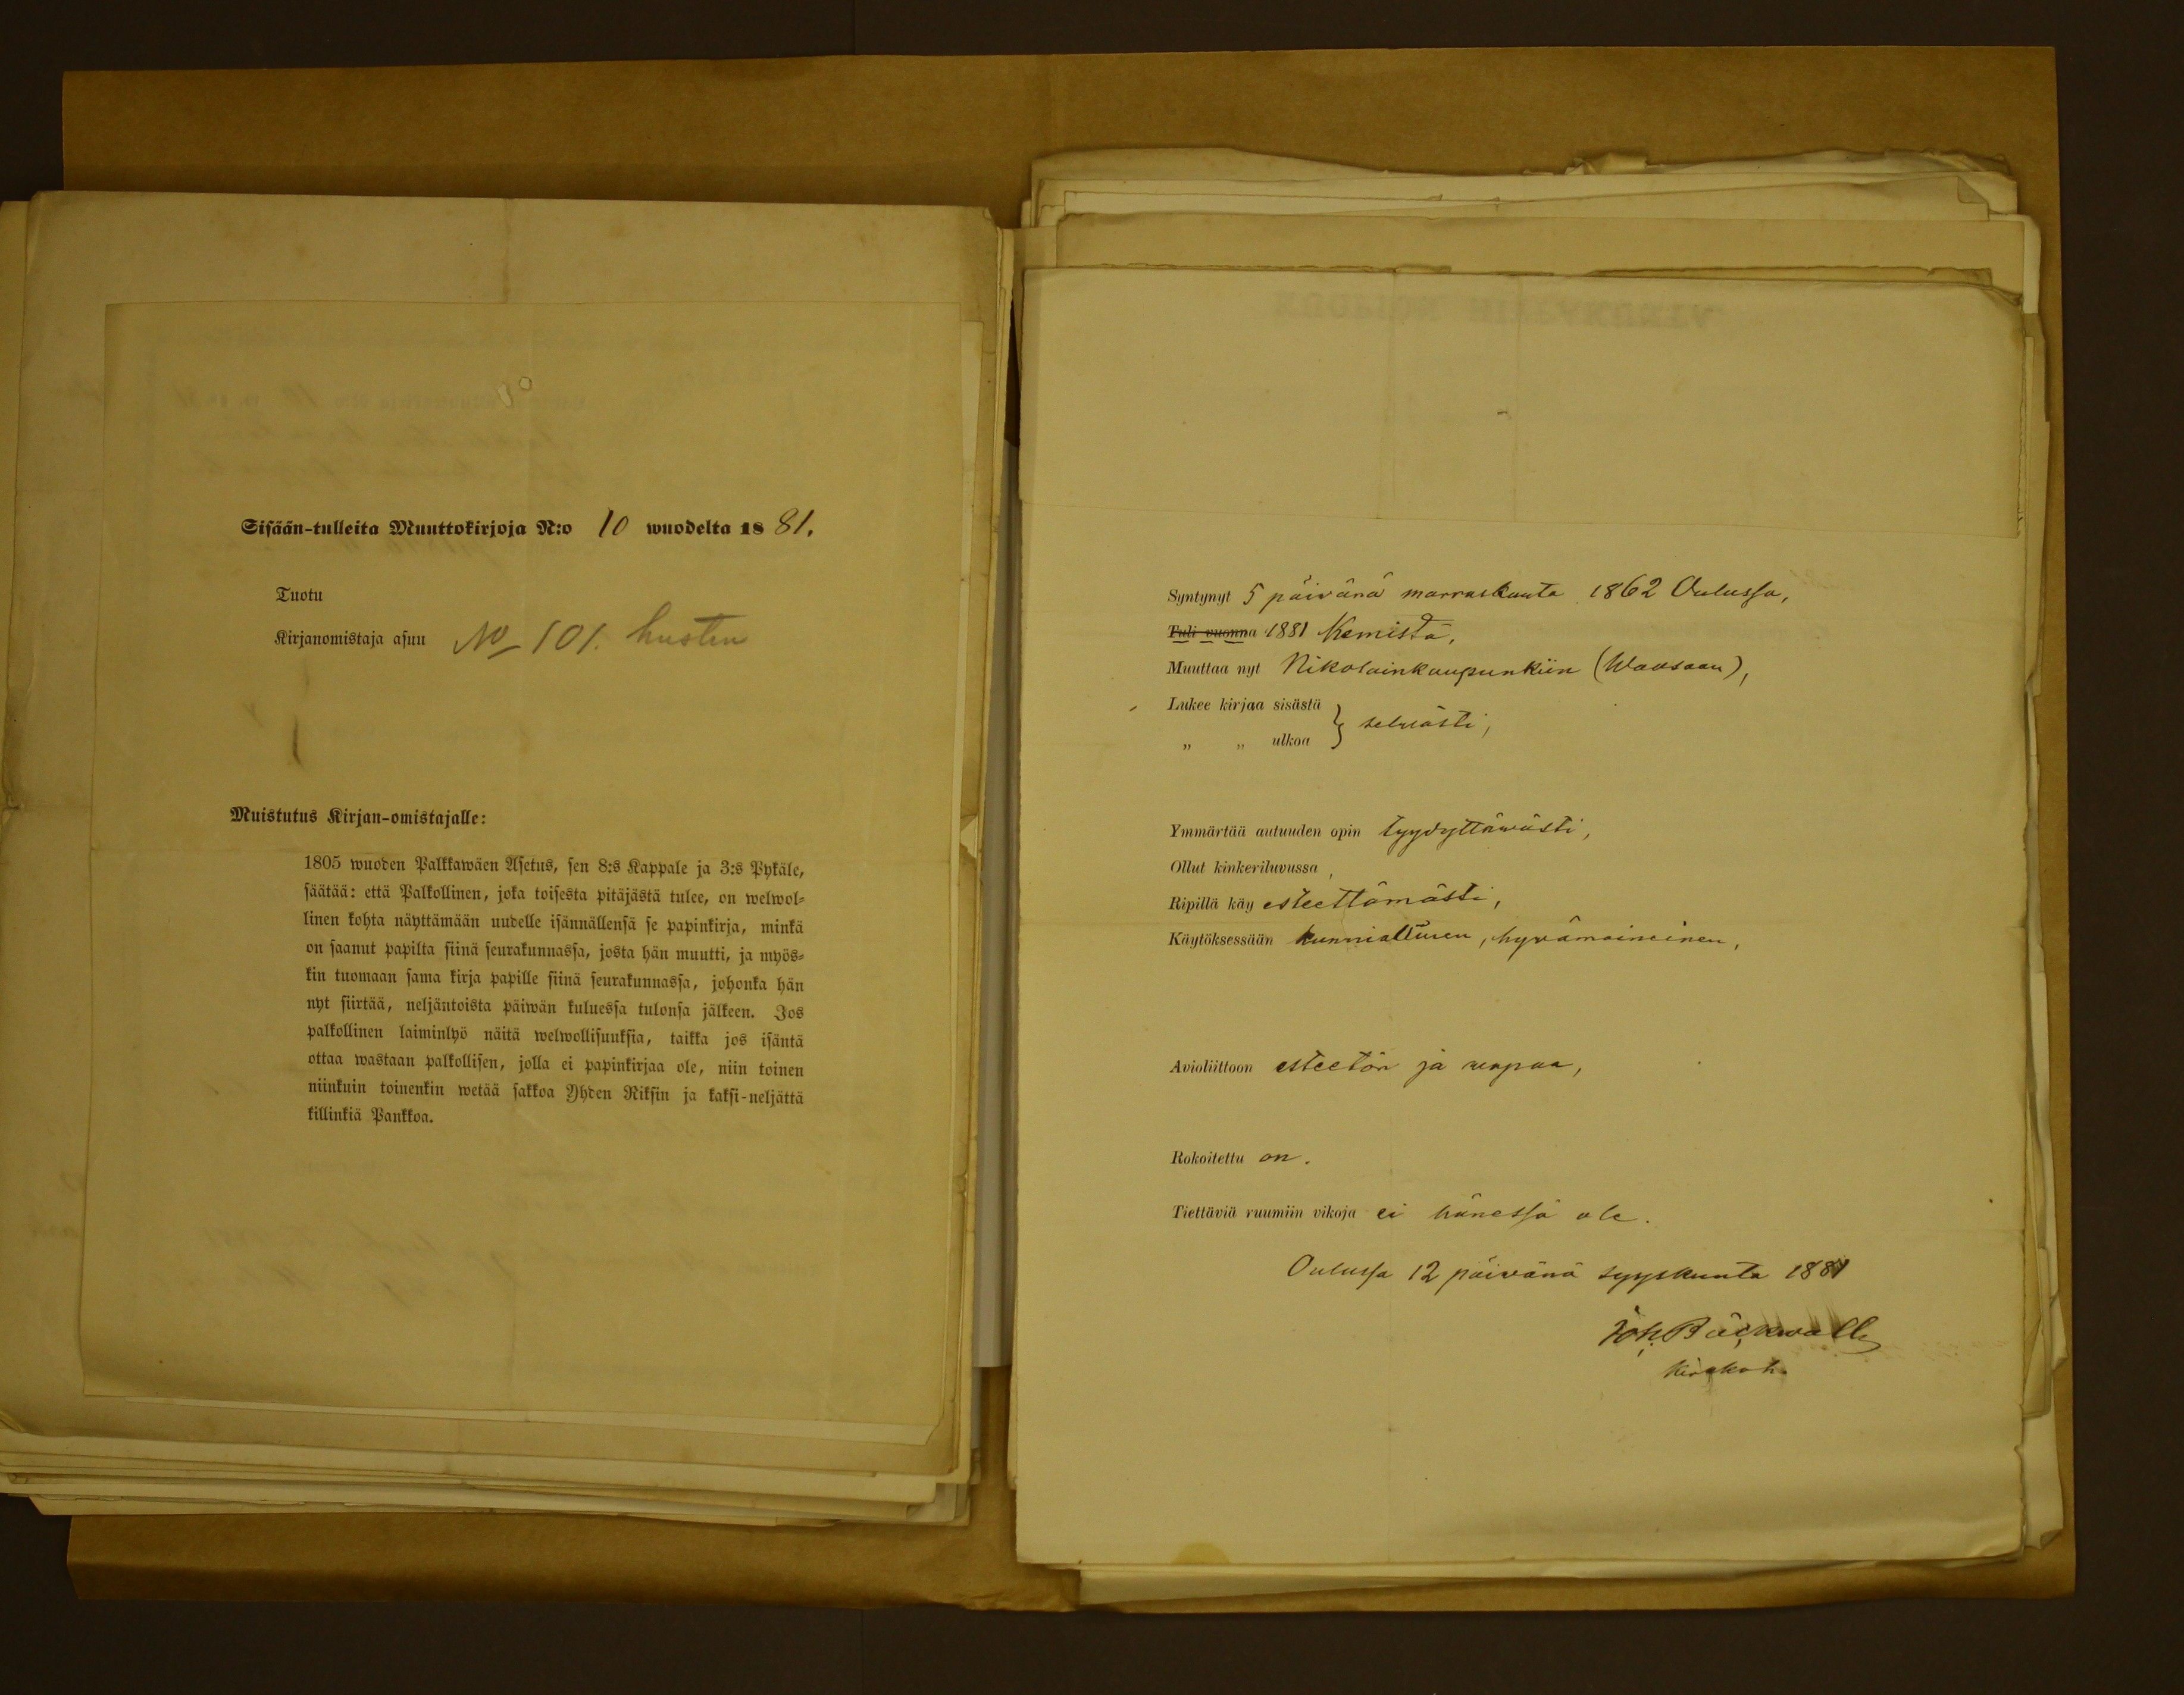 Sisään-tulleita Muuttokirjoja N:o 10 wuodelta 1881.
Tuotu
Kirjanomistaja asuu No 101. husten
Muistutus Kirjan-omistajalle:
1805 wuoden Palkkawäen Asetus, sen 8:s Kappale ja 3:s Pykäle,
säätää: että Palkollinen, joka toisesta pitäjästä tulee, on welwol-
linen kohta näyttämään uudelle isännällensä se papinkirja, minkä
on saanut papilta siinä seurakunnassa, josta hän muutti, ja myös-
kin tuomaan sama kirja papille siinä seurakunnassa, johonka hän
nyt siirtää, neljäntoista päiwän kuluessa tulonsa jälkeen. Jos
palkollinen laiminlyö näitä welwollisuuksia, taikka jos isäntä
ottaa wastaan palkollisen, jolla ei papinkirjaa ole, niin toinen
niinkuin toinenkin wetää sakkoa Yhden Riksin ja kaksi-neljättä
killinkiä Pankkoa.
Syntynyt 5 päivänä marraskuuta 1862 Oulussa,
Tuli vuonna 1881 Kemistä,
Muuttaa nyt Nikolainkaupunkiin (Waasaan),
Lukee kirjaa sisästä
„ „ ulkoa } selvästi,
Ymmärtää autuuden opin tyydyttäwästi,
Ollut kinkeriluvussa,
Ripillä käy esteettömästi,
Käytöksessään kunniallinen, hyvämaineinen,
Avioliittoon esteetön ja vapaa,
Rokoitettu on.
Tiettäviä ruumiin vikoja ei hänessä ole.
Oulussa 12 päivänä syyskuuta 1881
Joh. Bäckwall
Kirkkoh.